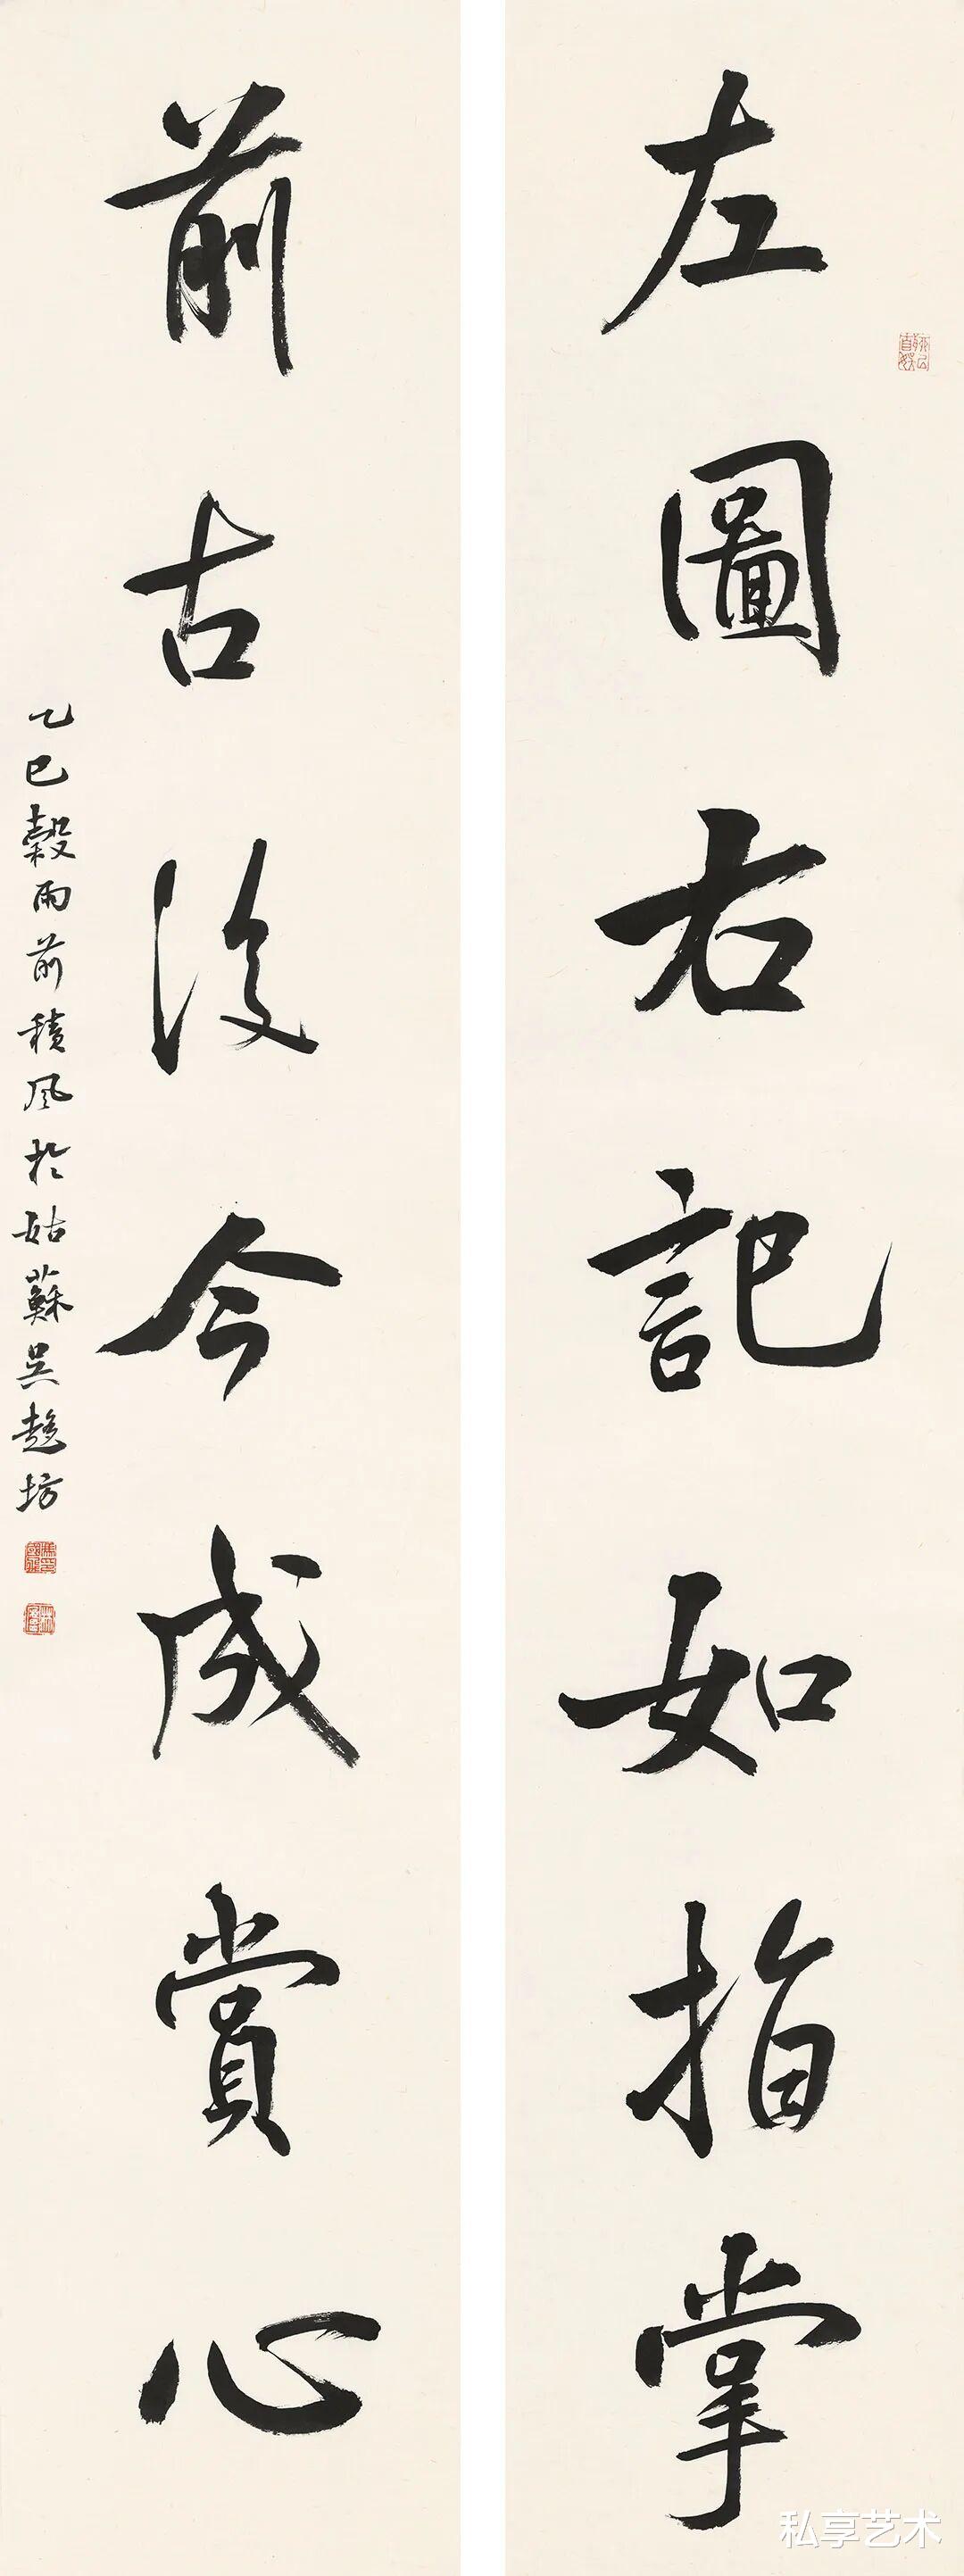 左圖右記如指掌
前古後今成賞心
乙巳穀雨前積風於姑蘇吳趨坊
私享艺术